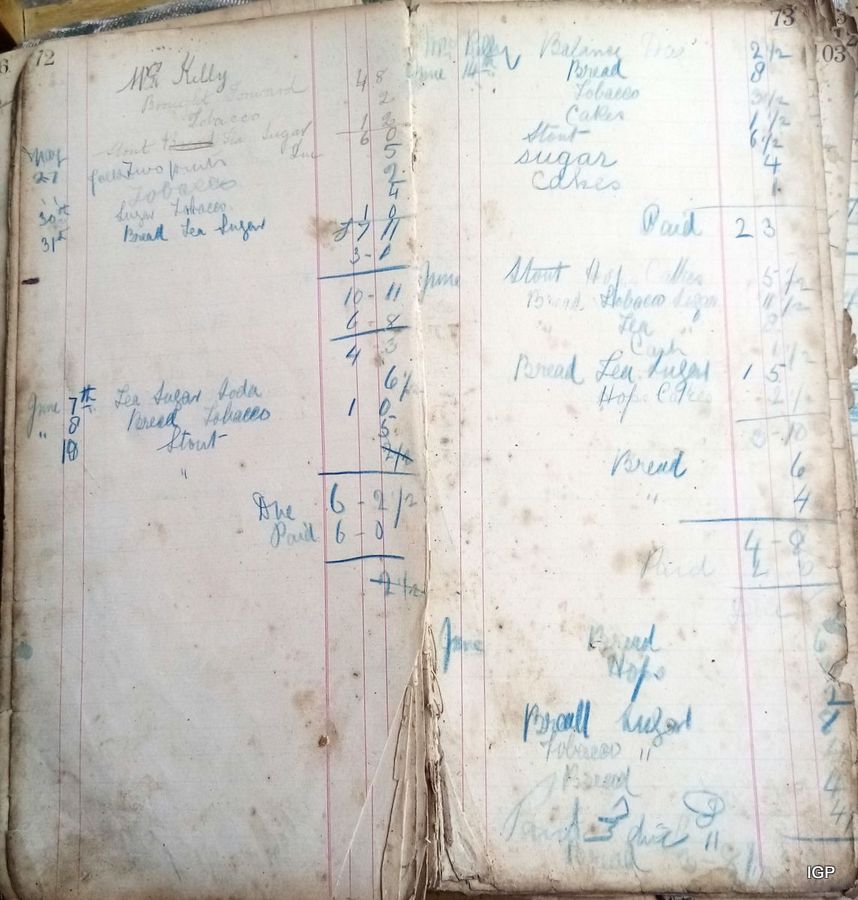 72
Mrs Killy
4 8
Brought Forward 2
Tobacco 1 2
Stout Tea Sugar 6 0
May Due 5
27 two pints 2
Tobacco 4
30th Sugar Tobacco 1 0
31st Bread Tea Sugar 7 11
3-1
10-11
6-8
4 3
June 7th Tea Sugar Soda 6½
" 8 Bread Tobacco 1 0
10 Stout 5
" 2½
Due 6-2½
Paid 6-0
2½
73
Mrs Killy Balance 2½
June 14th Bread 8
Tobacco 3½
Cakes 1½
Stout 6½
Sugar 4
Cakes 1
Paid 2 3
June Stout Hop Cakes 5½
Bread Tobacco Sugar 11½
" Tea " 8
Cash 1½
Bread Tea Sugar 1 5
Hop Cakes 2½
3-10
Bread 6
" 4
4-8
Paid 2 0
June Bread 6
Hops
2
Bread Sugar 8
Tobacco " 4
Bread 4
4
Paid
Bread
103
IGP